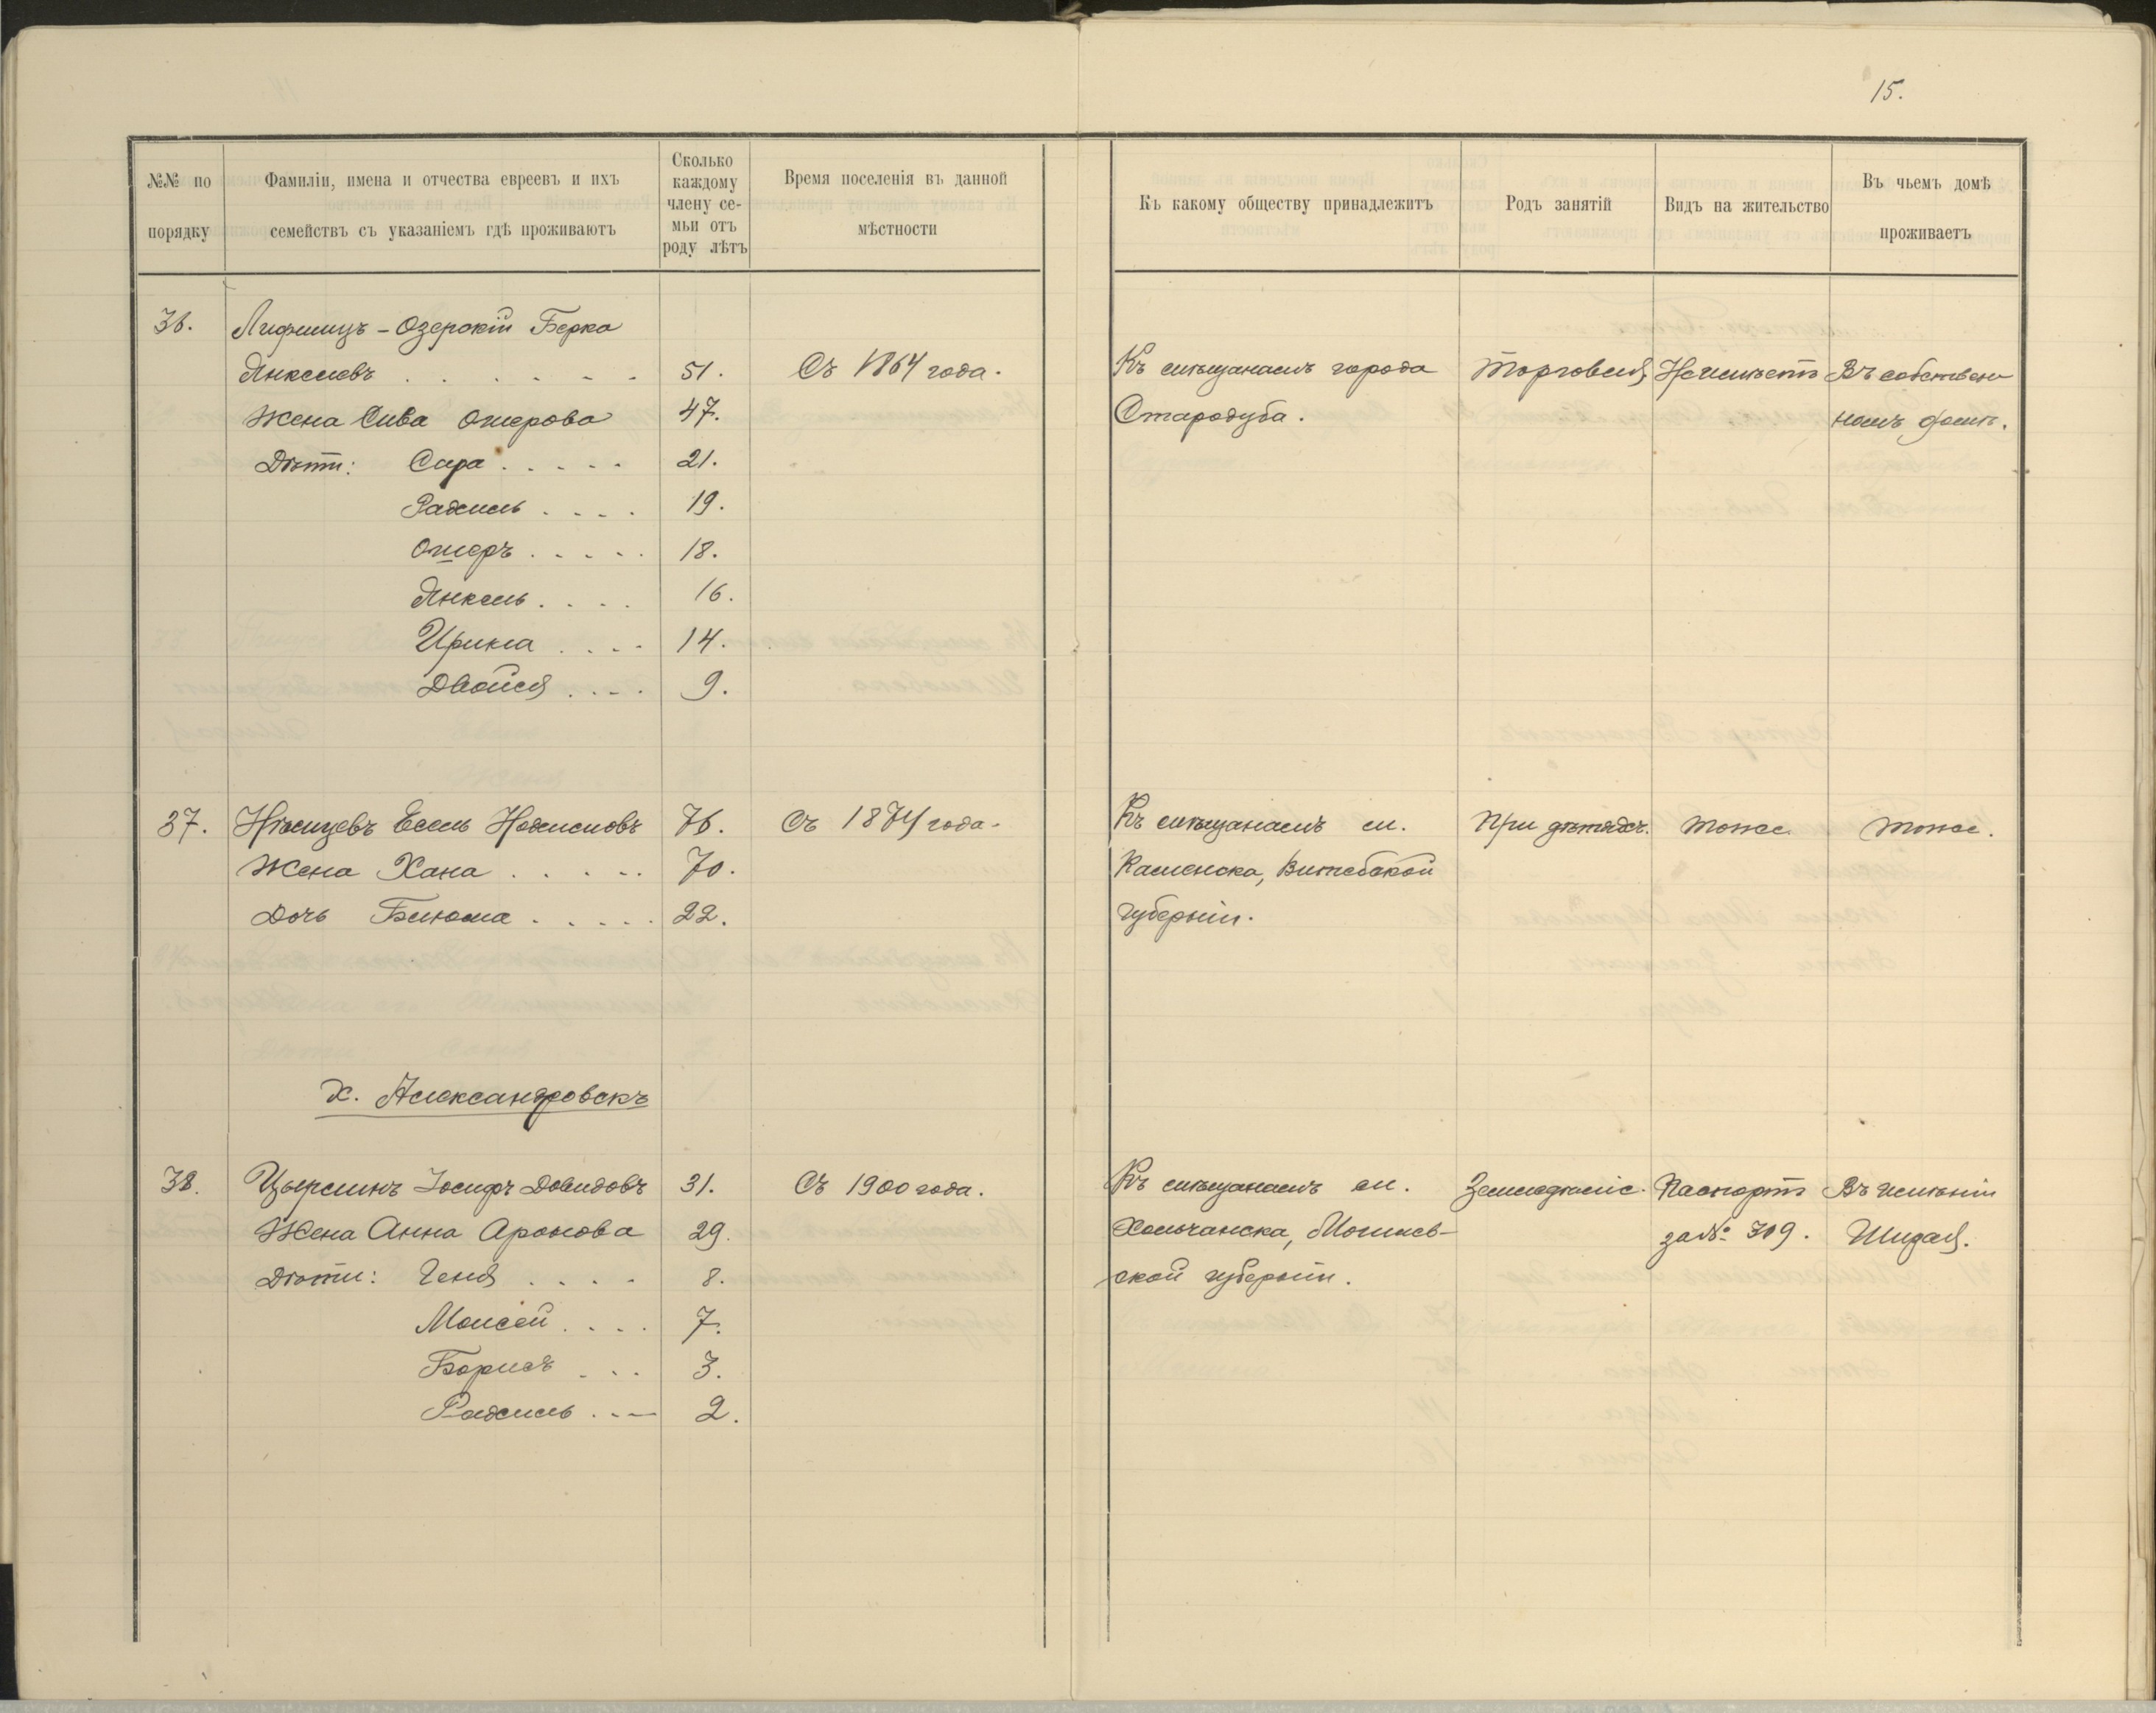 15.
№№ по порядку
Фамиліи, имена и отчества евреевъ и ихъ семействъ съ указаніемъ гдѣ проживаютъ
Сколько каждому члену семьи отъ роду лѣтъ
Время поселенія въ данной мѣстности
Къ какому обществу принадлежитъ
Родъ занятій
Видъ на жительство
Въ чьемъ домѣ проживаетъ
36. Лифшицъ-Озерскій Берка
Янкелевъ 51. Съ 1864 года. Къ мѣщанамъ города Торговля Неимѣетъ Въ собствен
Жена Сива Ошерова 47. Стародуба. номъ домѣ.
Дѣти: Сара 21.
Рахиль 19.
Ошеръ 18.
Янкель 16.
14.
Двойся 9.
37. Нѣмцевъ Есель 76. Съ 1874 года. Къ мѣщанамъ м. При дѣтяхъ. тоже. тоже.
Жена Хана 70. Витебской
Дочь Блюма 22. губерніи.
х. Александровскъ
38. Цырлинъ Іосифъ Довидовъ 31. Съ 1900 года. Къ мѣщанамъ м. Земледѣліе. Паспортъ Въ имѣніи
Жена Анна Аронова 29. Хольчанска, Могилев- за № 709. Шидая.
Дѣти: Геня 8. ской губерніи.
Моисей 7.
Борисъ 3.
Рахиль 2.